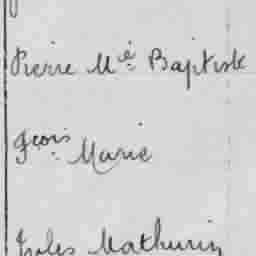 Pierre Mie Baptiste
Fçois Marie
Jules Mathurin